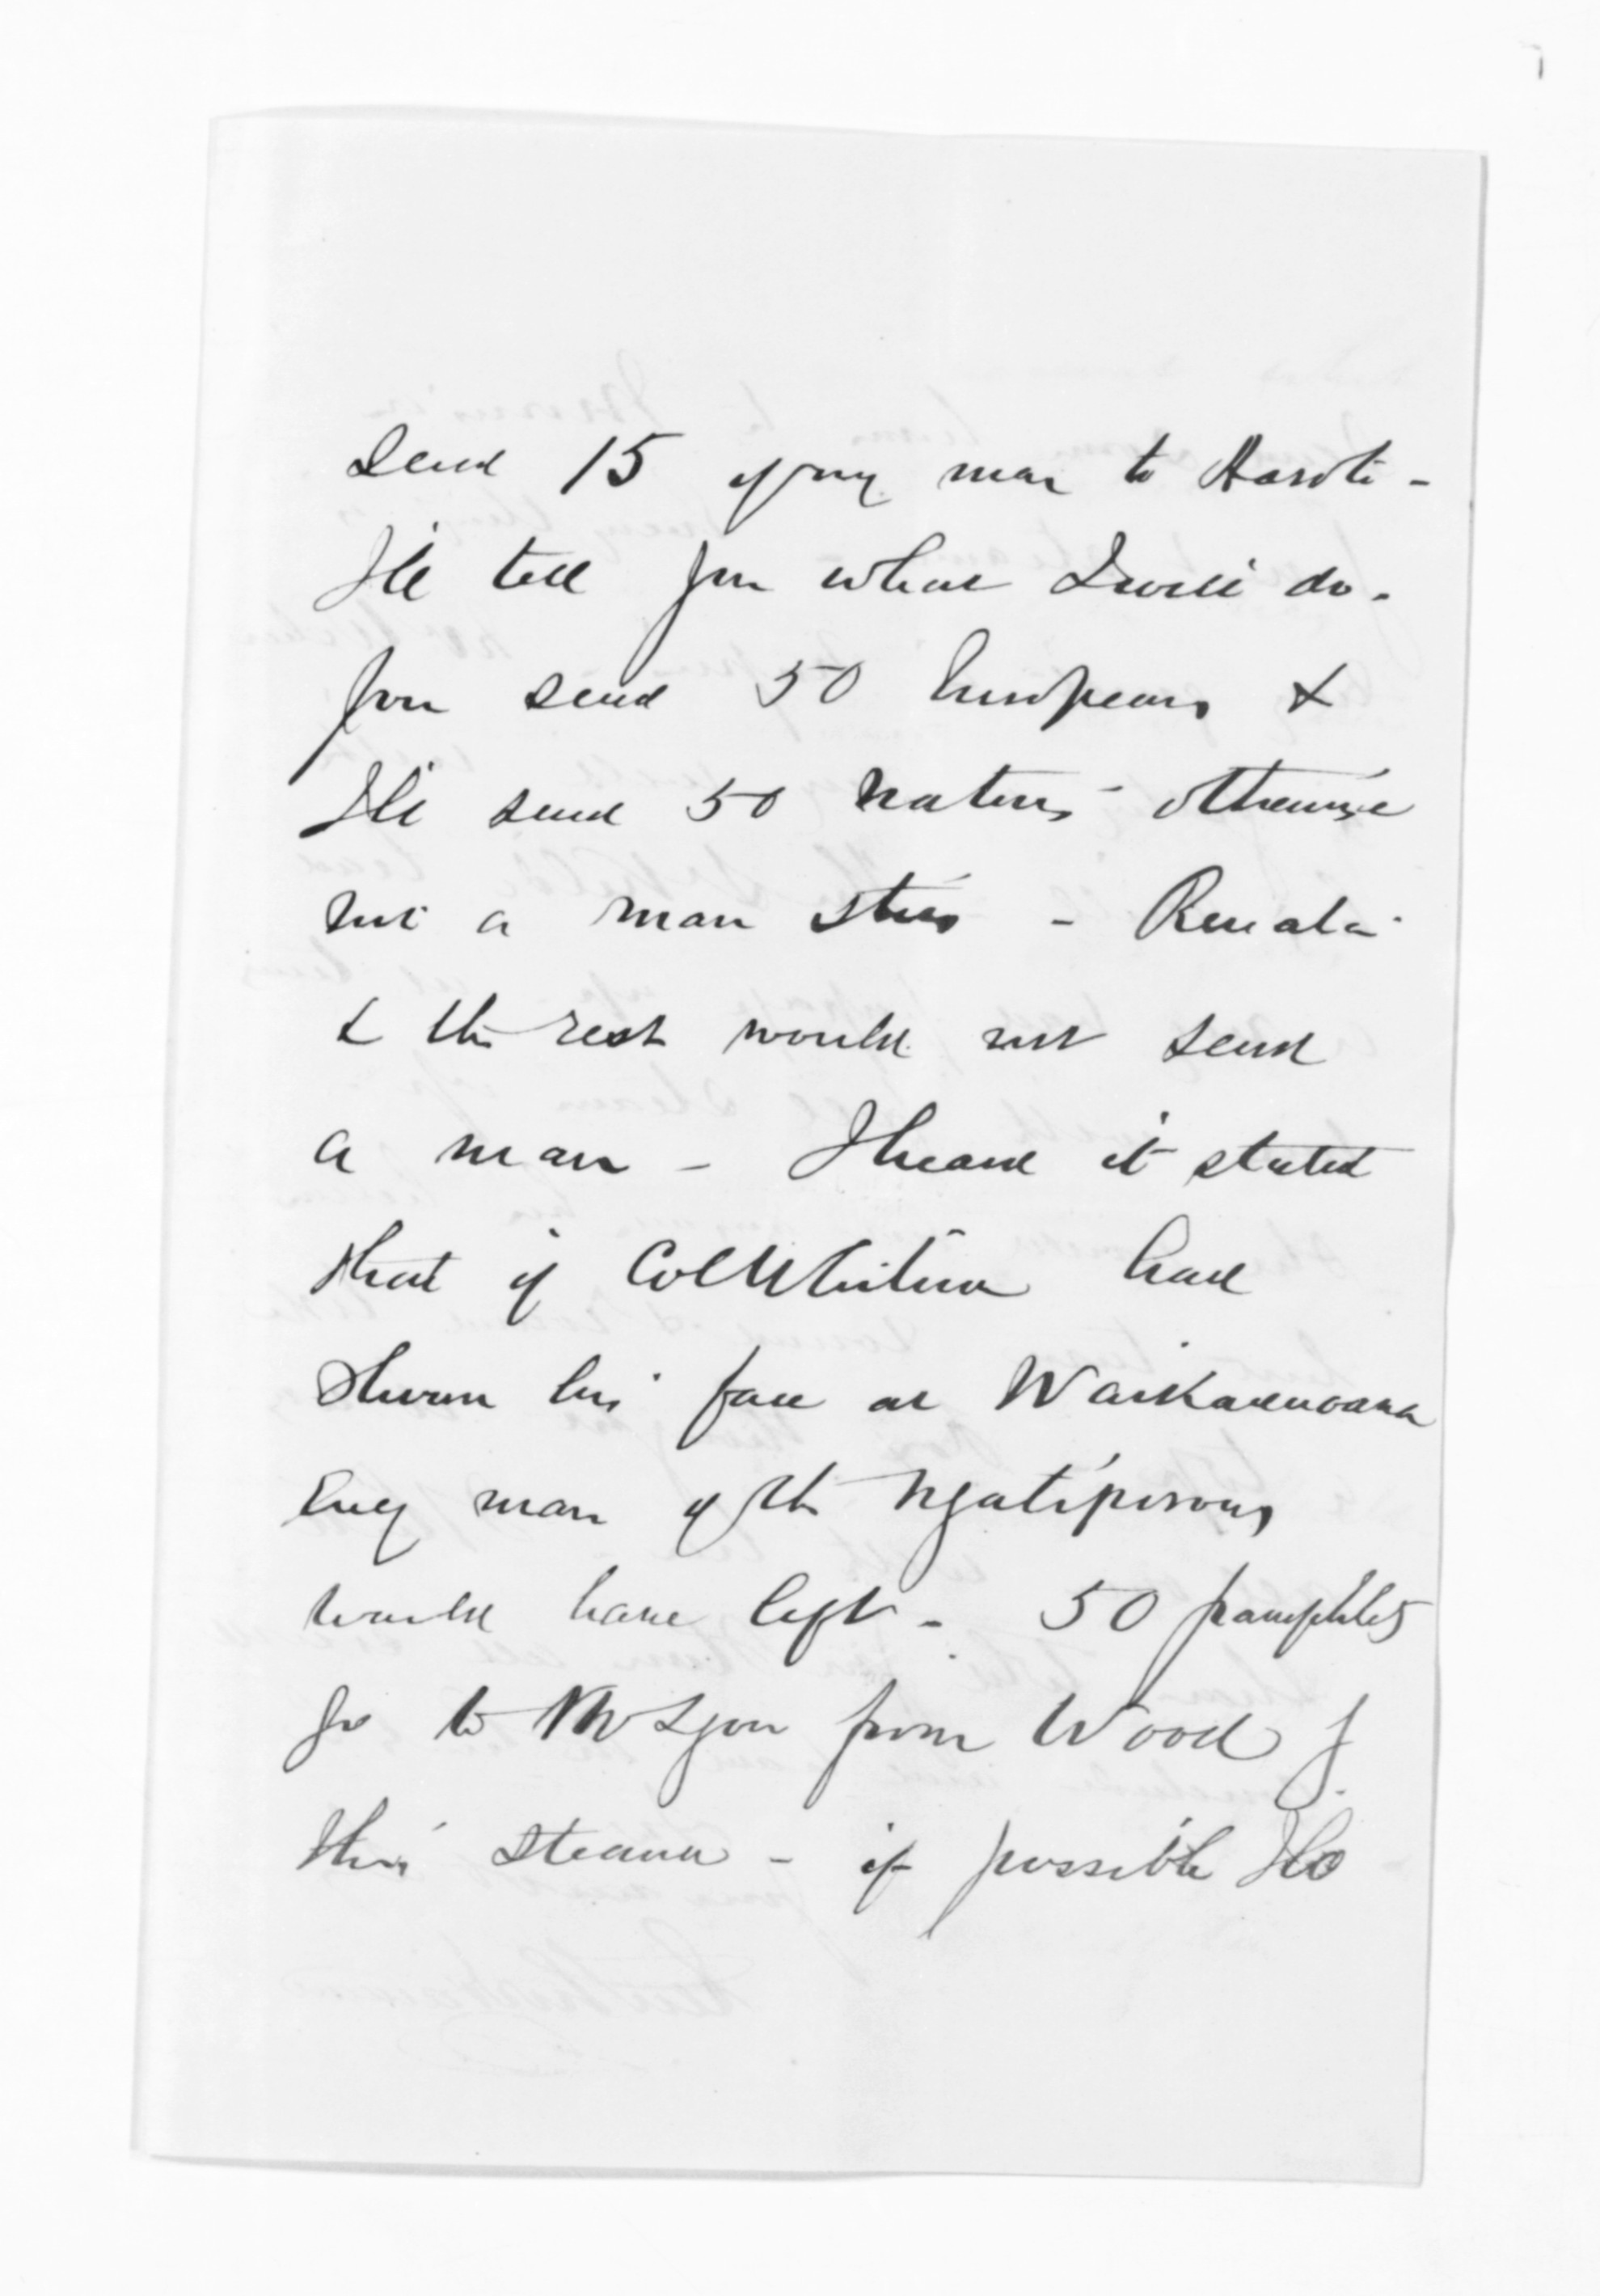 send 15 of my men to Haroto -
I'll tell you what I will do.
You send 50 Europeans &
I'll send 50 natives - otherwise
not a man stirs - Renata
& the rest would not send
a man - I heard it stated
that if Col Whitmore had
shewn his face at Waikaremoana
every man of the Ngatiporous
would have left - 50 pamphlets
go to from Wood by
this steamer - if possible